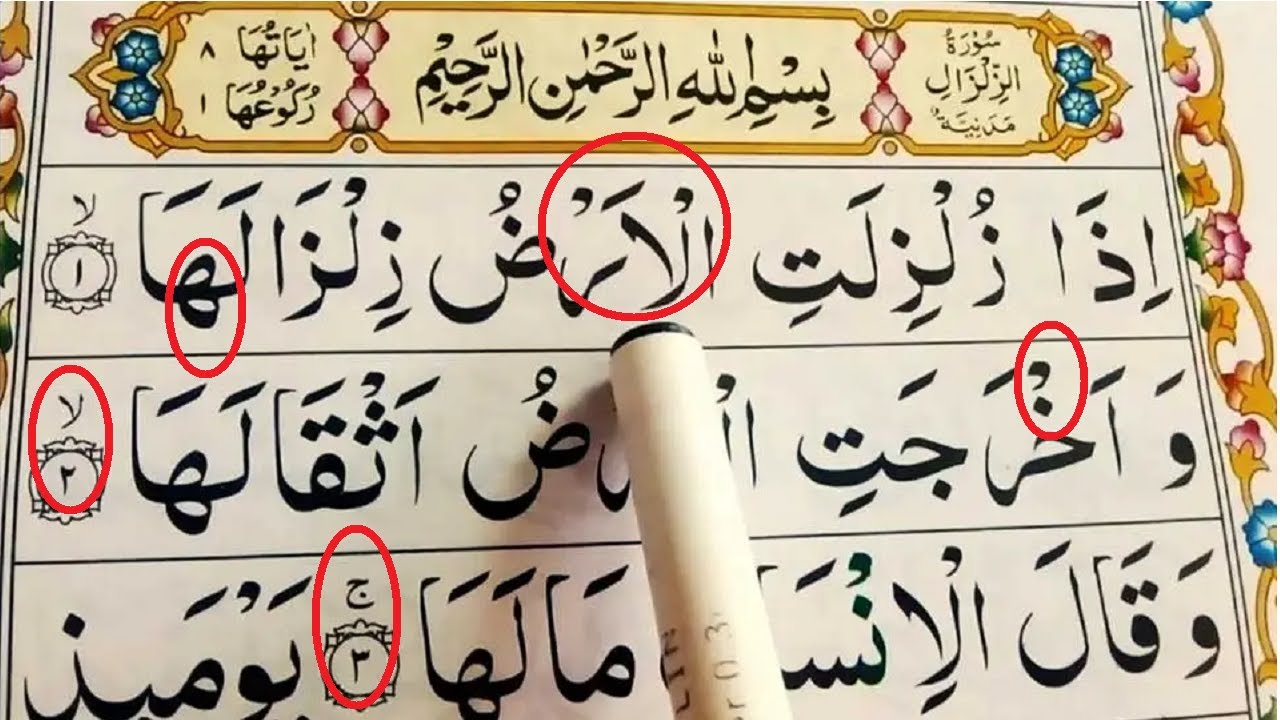 سُوْرَةُ الزِّلْزَالِ مَدَنِيَّةٌ
بِسْمِ اللّٰهِ الرَّحْمٰنِ الرَّحِيْمِ
اٰيَاتُهَا ٨
رُكُوْعُهَا ١
اِذَا زُلْزِلَتِ الْاَرْضُ زِلْزَالَهَا لا ١
وَ اَخْرَجَتِ الْاَرْضُ اَثْقَالَهَا لا ٢
وَ قَالَ الْاِنْسَا مَا لَهَا ج ٣ يَوْمَىِٕذٍ
LIN
or 03